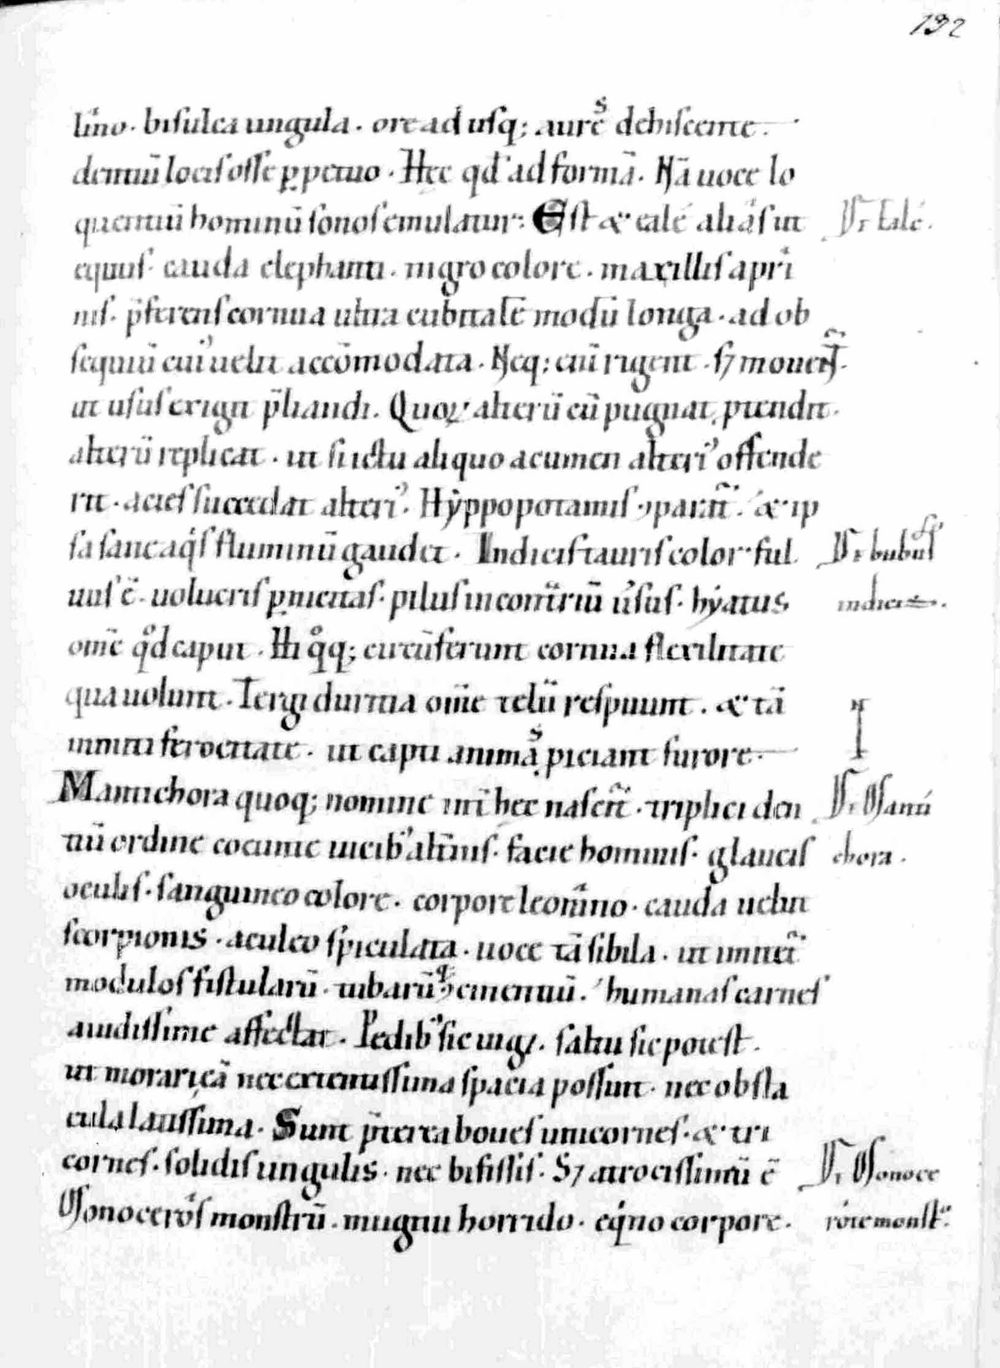 132
lino. bisulca ungula. ore ad usq; aures dehiscente.
dentiũ locis osse p̱petuo. Hec qd̓ ad formã. Nã uoce lo
quentiũ hominũ sonos emulatur. Est & eale alias ut
D̃e eale.
equus. cauda elephanti. nigro colore. maxillis apri
nis. p̃ferens cornua ultra cubitalẽ modũ longa. ad ob
sequiũ cui᾽ uelit accõmodata. Neq; eni rigent. s; mouent̃.
ut usus exigit p̃liandi. Quoꝝ alterũ cũ pugnat, ptendit.
alterũ replicat. ut si ictu aliquo acumen alteri᾽ offende
rit. acies succedat alteri᾽. Hyppopotamis ꝯparat̃. & ip
sa sane aqis fluminũ gaudet. Indicis tauris color ful
D̃e bubus
uus ẽ. uolucris p̱nicitas. pilus in cont̃riũ u̓sus. hyatus
indicis.
om̃e qd̓ caput. Hi qq; circũferunt cornua flexilitate
qua uolunt. Tergi duritia om̃e telũ respuunt. & tã
inmiti ferocitate. ut capti animas p̱iciant furore.
Mantichora quoq; nomine int̃ hec nascit̃. triplici den
D̃e Manti
tiũ ordine coeunte uicib᾽ alt̃nis. facie hominis. glaucis
chora.
oculis. sanguineo colore. corpore leonino. cauda uelut
scorpionis. aculeo spiculata. uoce tã sibila. ut imitet̃
modulos fistularũ. tubarũq; ꝯcinentiũ. humanas carnes
auidissime affectat. Pedib᾽ sic uiget. saltu sic potest.
ut morari eã nec extentissima spacia possint. nec obsta
cula latissima. Sunt p̃terea boues unicornes. & tri
cornes. solidis ungulis. nec bifissis. S; atrocissimũ ẽ
D̃e Monoce
Monoceros monstrũ. mugitu horrido. equino corpore.
rote monst̃.